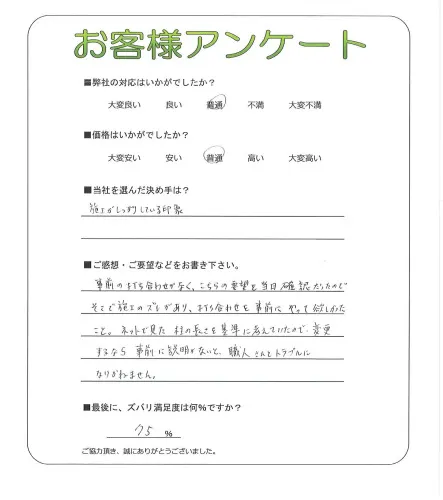 お客様アンケート
■弊社の対応はいかがでしたか？
大変良い 良い 普通 不満 大変不満
■価格はいかがでしたか？
大変安い 安い 普通 高い 大変高い
■当社を選んだ決め手は？
施工がしっかりしている印象
■ご感想・ご要望などをお書き下さい。
事前の打ち合わせがなく、こちらの要望を当日確認だったので
そこで施工のズレがあり、打ち合わせを事前にやって欲しかった
こと。ネットで見た村の長さを基準に考えていたので、変更
するなら事前に説明がないと、職人さんとトラブルに
なりかねません。
■最後に、ズバリ満足度は何%ですか？
75 %
ご協力頂き、誠にありがとうございました。